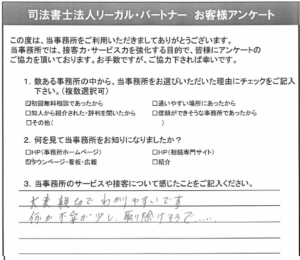 司法書士法人リーガル・パートナー お客様アンケート
この度は、当事務所をご利用いただきましてありがとうございます。
当事務所では、接客力・サービス力を強化する目的で、皆様にアンケートの
ご協力を頂いております。お手数ですが、ご協力下されば幸いです。
1．数ある事務所の中から、当事務所をお選びいただいた理由にチェックをご記入
下さい。（複数選択可）
☑初回無料相談であったから □通いやすい場所にあったから
□知人から紹介された・評判を聞いたから □信頼ができそうな事務所であったから
□その他（ ）
2．何を見て当事務所をお知りになりましたか？
□HP（事務所ホームページ） □HP（相続専門サイト）
☑タウンページ・看板・広報 □紹介
3．当事務所のサービスや接客について感じたことをご記入ください。
大変親切でわかりやすいです
何か不安が少し取り除けそうで.....